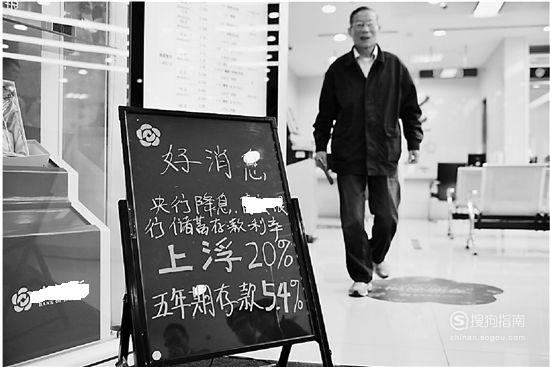 好消息
央行降息,
行储蓄存款利率
上浮20%
五年期存款5.4%
BANK OF
搜狗指南
zhinan.sogou.com